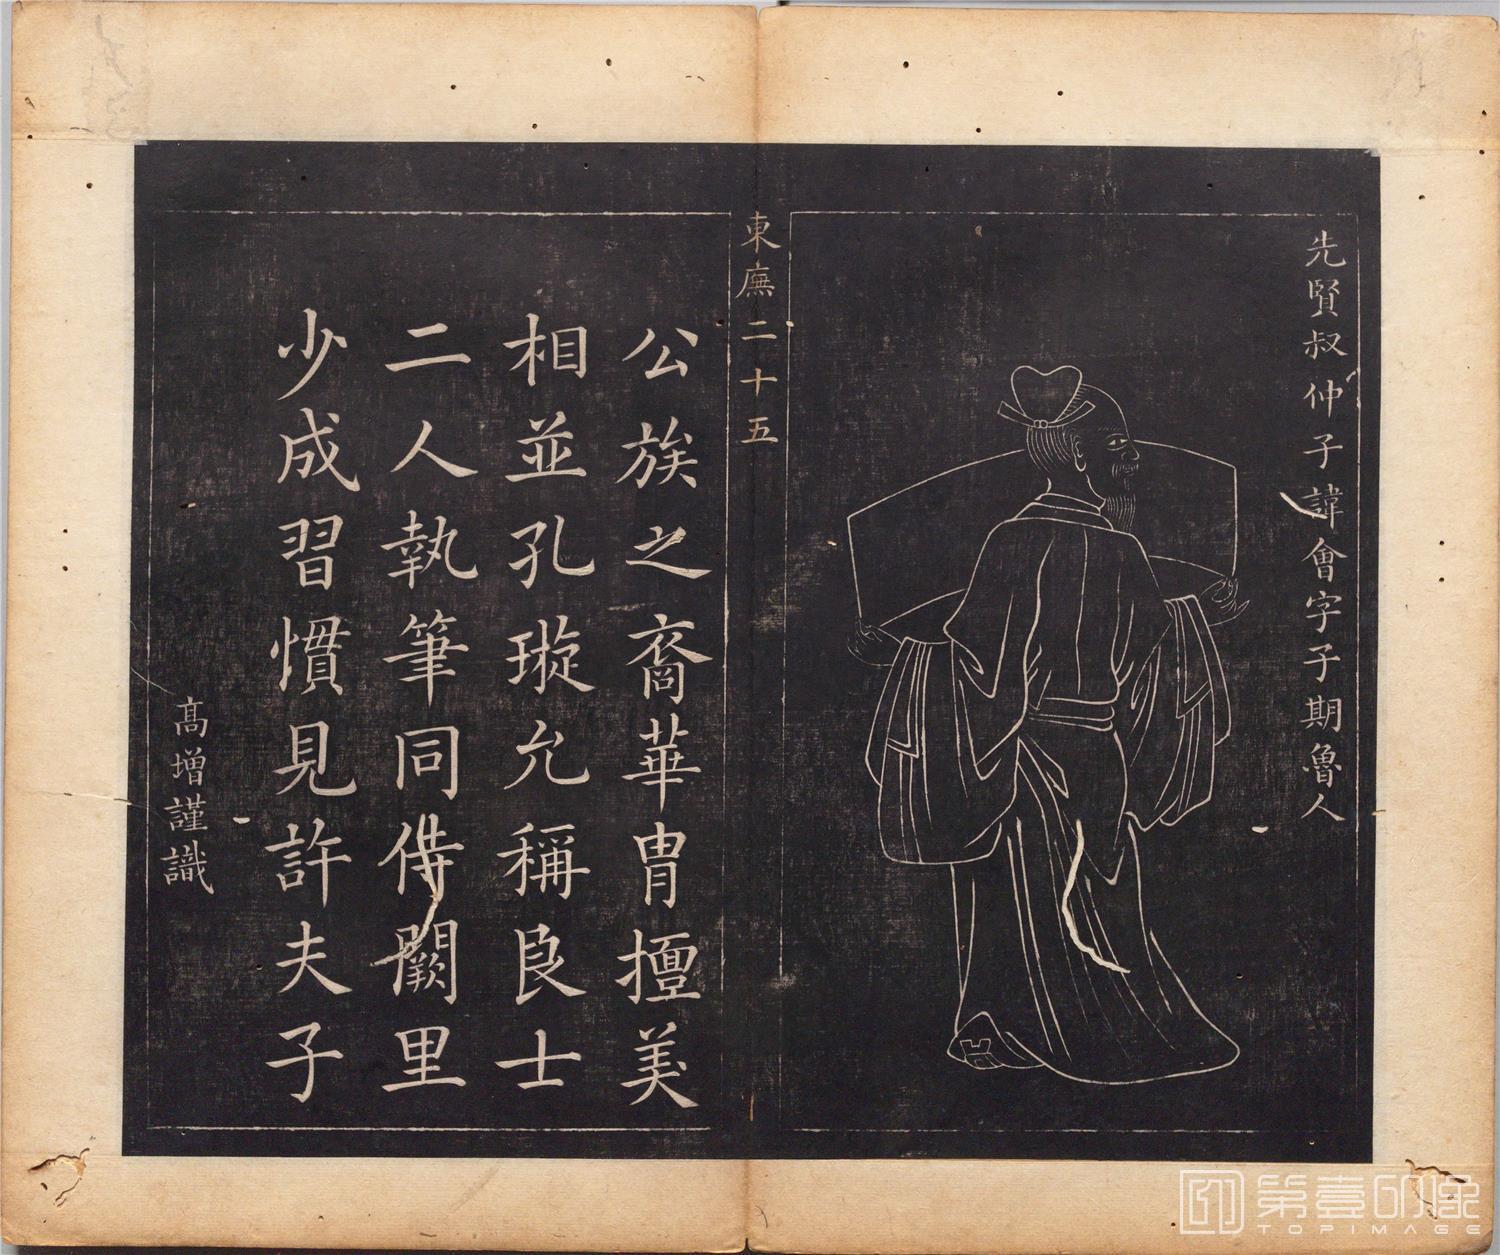 先賢叔仲子諱會字子期魯人
東廡二十五
公族之裔華冑擅美
相並孔璇允稱良士
二人執筆同侍闕里
少成習慣見許夫子
高增謹識
第壹印像
TOPIMAGE